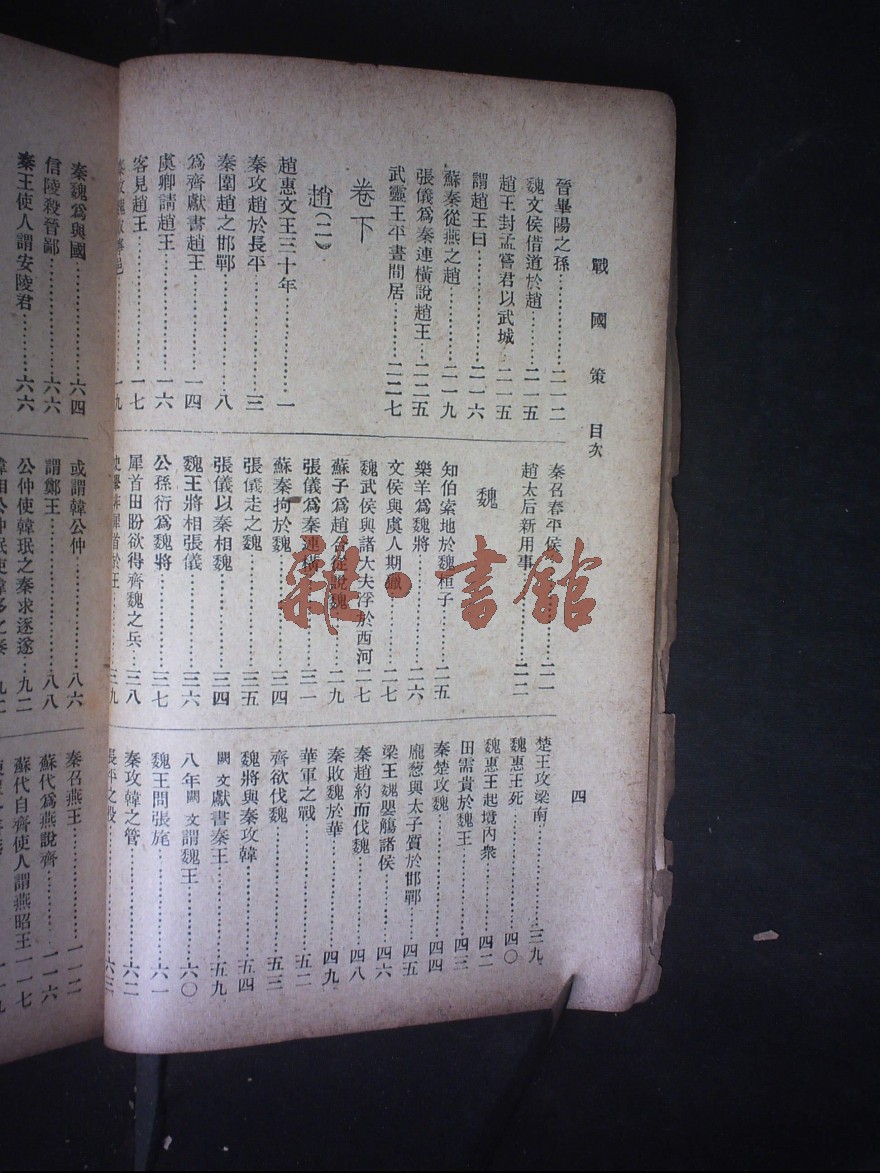 戰國策 目次
四
晉畢陽之孫……二一二
魏文侯借道於趙……二一五
趙王封孟嘗君以武城……二一五
謂趙王曰……二一六
蘇秦從燕之趙……二一九
張儀爲秦連橫說趙王……二二五
武靈王平晝間居……二二七
卷下
趙(二)
趙惠文王三十年……一
秦攻趙於長平……三
秦圍趙之邯鄲……八
爲齊獻書趙王……一四
虞卿請趙王……一六
客見趙王……一七
秦召春平侯……二一
趙太后新用事……二二
魏
知伯索地於魏桓子……二五
樂羊爲魏將……二六
文侯與虞人期獵……二七
魏武侯與諸大夫浮於西河……二七
蘇子爲趙合從說魏……二九
張儀爲秦連橫……三一
蘇秦拘於魏……三四
張儀走之魏……三五
張儀以秦相魏……三四
魏王將相張儀……三六
公孫衍爲魏將……三七
犀首田盼欲得齊魏之兵……三八
楚王攻梁南……三九
魏惠王死……四〇
魏惠王起境內衆……四二
田需貴於魏王……四三
秦楚攻魏……四四
龐葱與太子質於邯鄲……四五
梁王魏嬰觴諸侯……四六
秦趙約而伐魏……四八
秦敗魏於華……四九
華軍之戰……五二
齊欲伐魏……五三
魏將與秦攻韓……五四
闕文獻書秦王……五九
八年闕文謂魏王……六〇
魏王問張旄……六一
秦攻韓之管……六二
長平之役……六三
秦魏爲與國……六四
信陵殺晉鄙……六六
秦王使人謂安陵君……六六
或謂韓公仲……八六
謂鄭王……八八
公仲使韓珉之秦求逐遂……九二
秦召燕王……一一二
蘇代爲燕說齊……一一六
蘇代自齊使人謂燕昭王……一一七
雜·書館